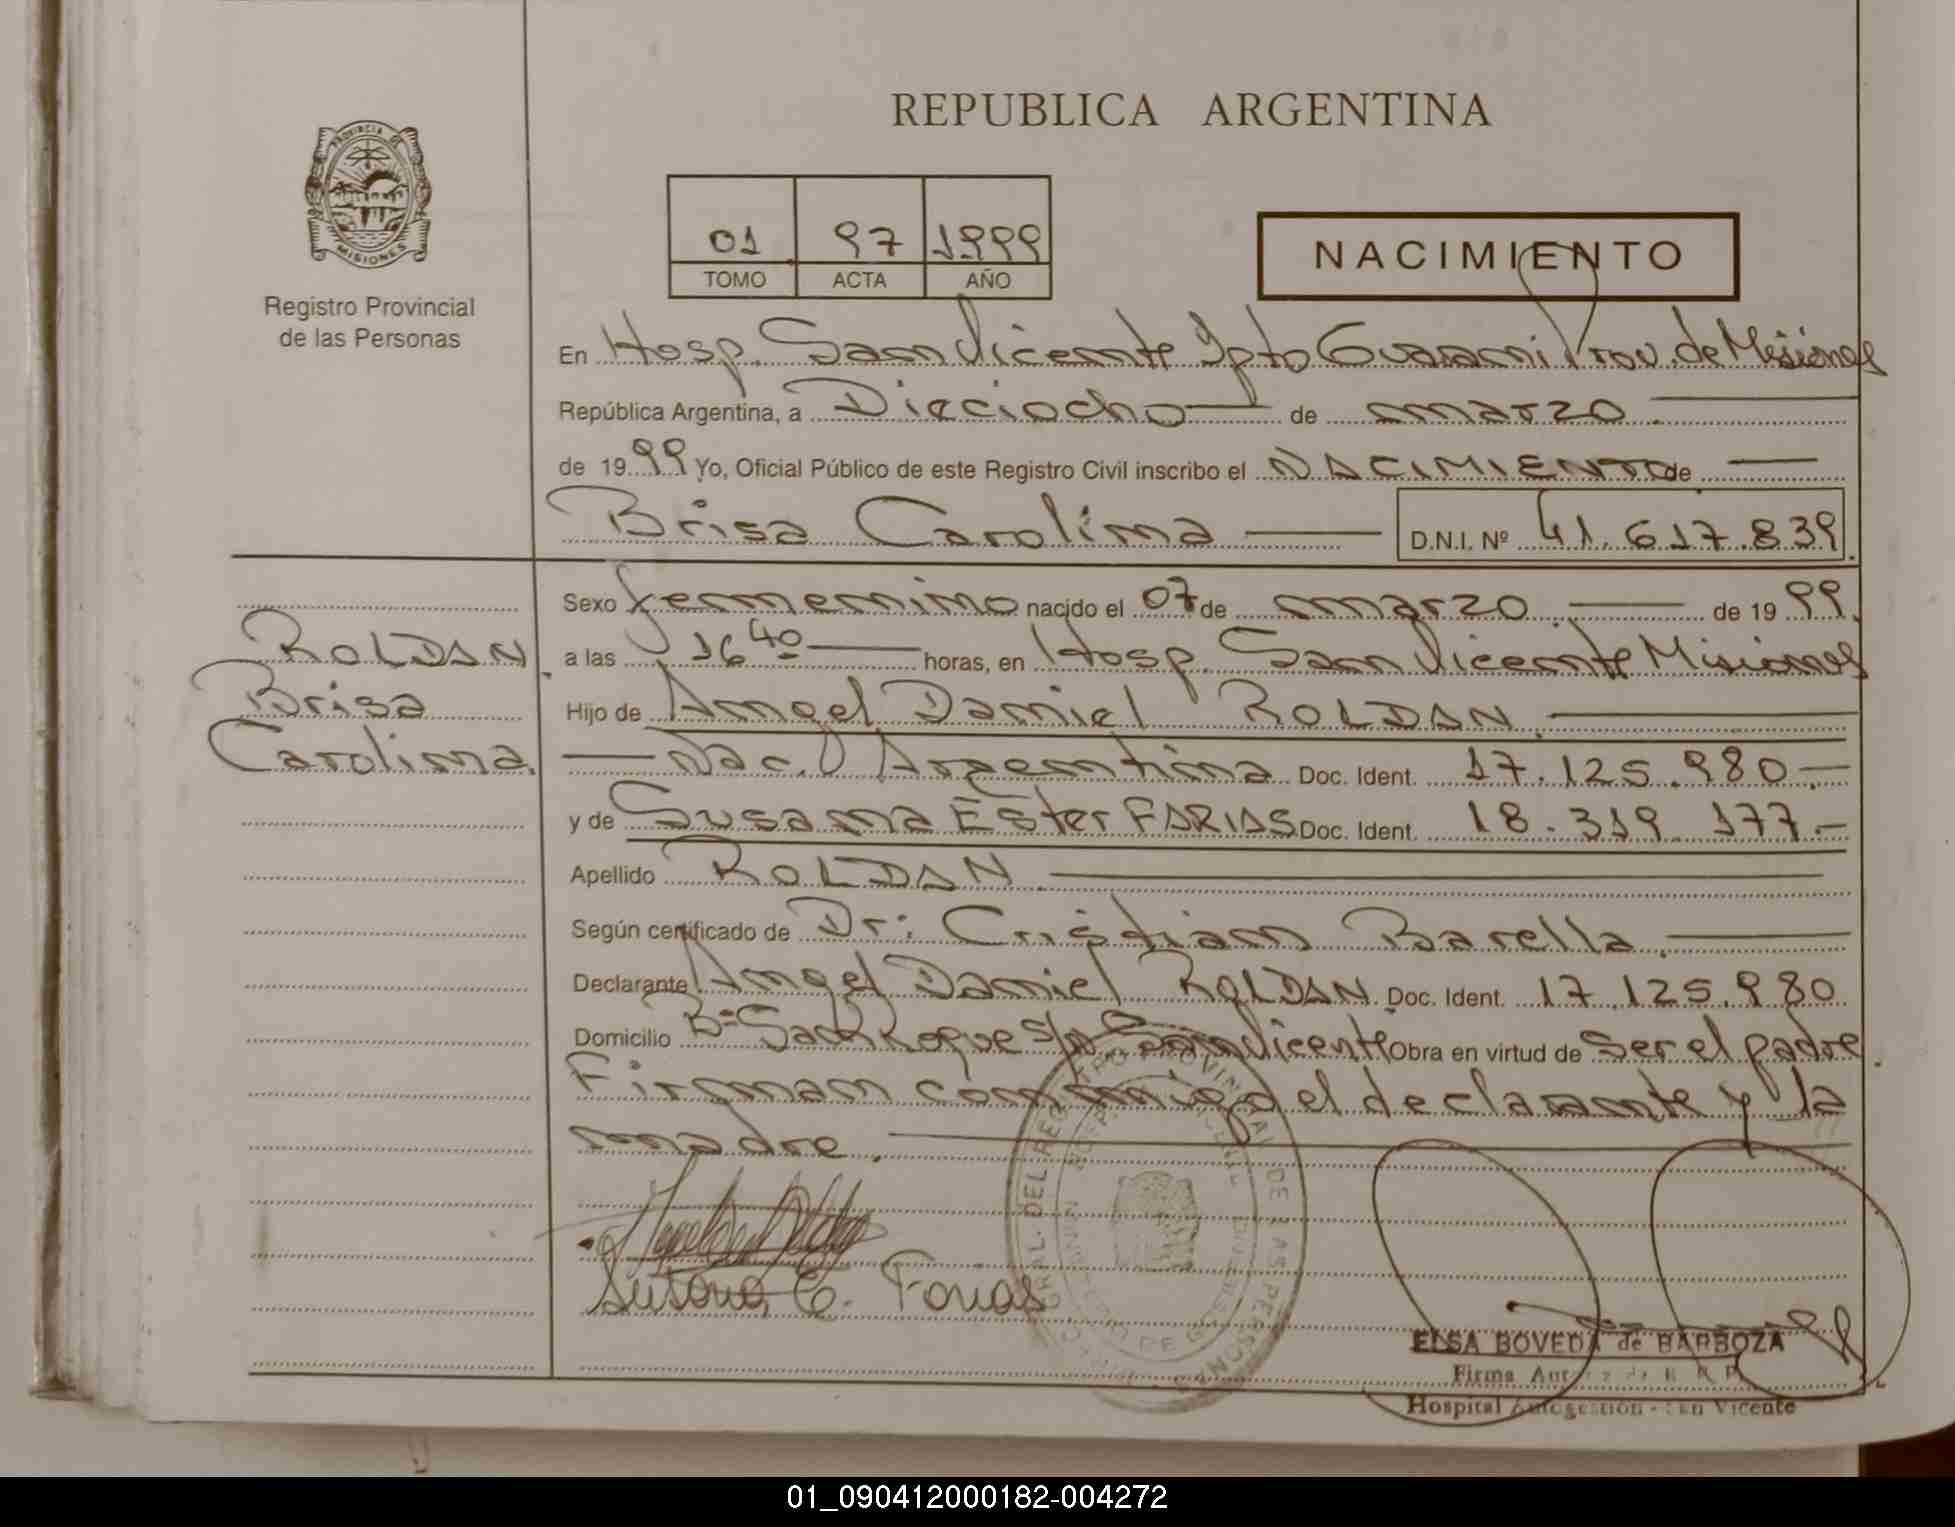 REPUBLICA ARGENTINA
PROVINCIA DE
MISIONES
Registro Provincial
de las Personas
01 97 1999
TOMO ACTA AÑO
NACIMIENTO
En Hosp. San Vicente Dpto Guarani Prov. de Misiones
República Argentina, a Dieciocho de marzo
de 1999 Yo, Oficial Público de este Registro Civil inscribo el NACIMIENTO de
Brisa Carolina D.N.I. Nº 41.617.839
Sexo femenino nacido el 07 de marzo de 1999.
ROLDAN
Brisa
Carolina.
a las 16 40 horas, en Hosp. San Vicente Misiones
Hijo de Angel Daniel ROLDAN
Nac. Argentina Doc. Ident. 17.125.980.-
y de Susana Ester FARIAS Doc. Ident. 18.319.177.-
Apellido ROLDAN
Según certificado de Dr: Cristian Barella
Declarante Angel Daniel ROLDAN. Doc. Ident. 17.125.980
Domicilio Bº San Roque s/n San Vicente Obra en virtud de ser el padre.
Firman conmigo el declarante y la
madre.
Susana E. Farias
GRAL. DEL REGISTRO PROVINCIAL DE LAS PERSONAS
ELSA BOVEDA de BARBOZA
Firma
Hospital Autogestión - San Vicente
01_090412000182-004272